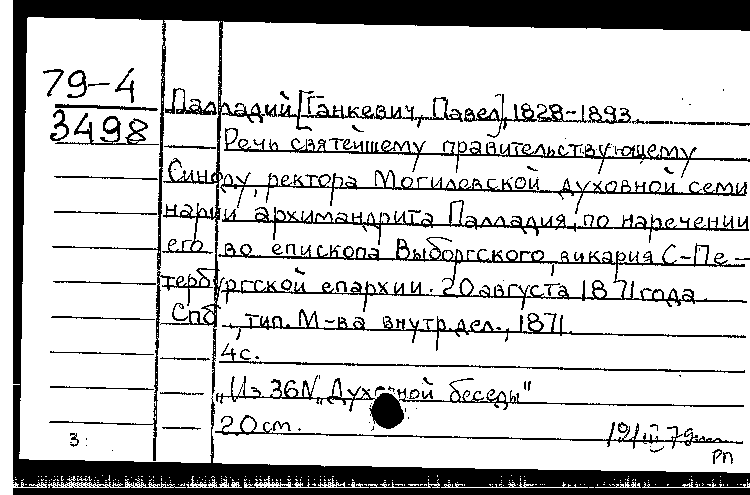 79-4
3498
Палладий [Ганкевич, Павел], 1828-1893.
Речь святейшему правительствующему
Синоду, ректора Могилевской духовной семи
нарии архимандрита Палладия, по наречении
его во епископа Выборгского, викария С-Пе-
тербургской епархии. 20 августа 1871 года.
Спб., тип. М-ва внутр. дел., 1871.
4 с.
"Из 36 N "Духовной беседы"
20 см.
3
РП